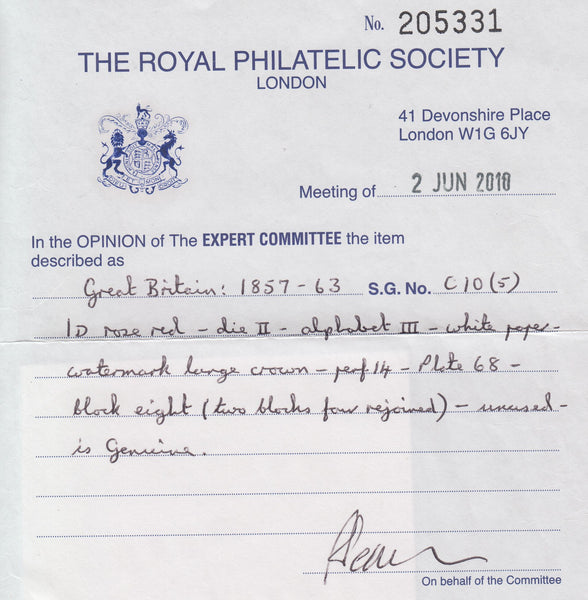 No. 205331
THE ROYAL PHILATELIC SOCIETY
LONDON
41 Devonshire Place
London W1G 6JY
Meeting of 2 JUN 2010
In the OPINION of The EXPERT COMMITTEE the item
described as
Great Britain: 1857-63 S.G. No. C10(5)
1D rose red - die II - alphabet III - white paper -
watermark large crown - perf 14 - Plate 68 -
block eight (two blocks four rejoined) - unused -
is Genuine.
On behalf of the Committee